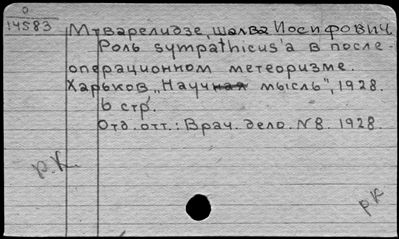 0
14583
Мтварелидзе, Шалва Иосифович.
Роль sympathicus'a в после-
операционном метеоризме.
Харьков „Научная мысль", 1928.
6 стр.
Отд. отт.: Врач. дело. N 8. 1928.
р.К.
рК